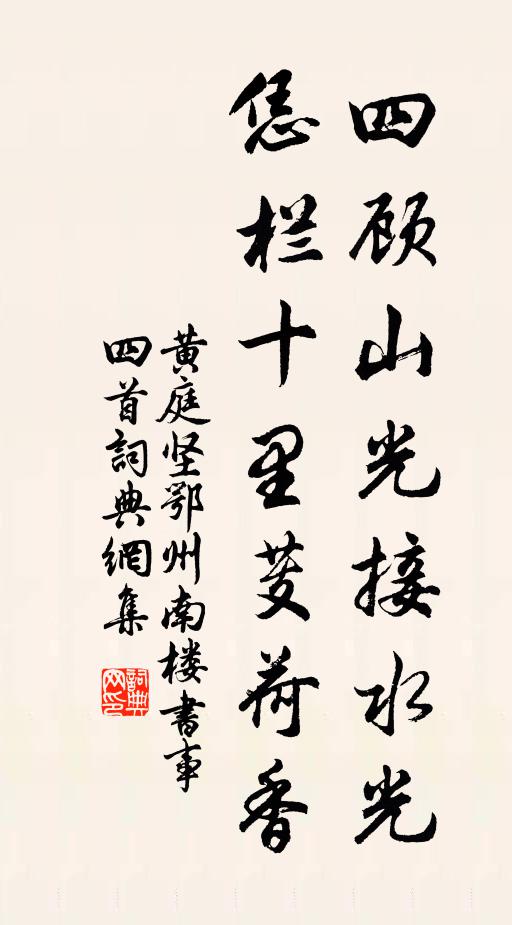 四顾山光接水光
恁栏十里芰荷香
黄庭坚鄂州南楼書事
四首詞典網集
詞典
网印